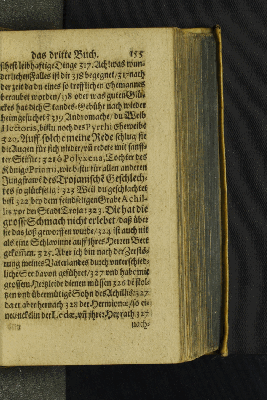 das dritte Buch. 155
selbst leibhafftige Dinge 317. Ach was wun-
derlichen Falles ist dir 318 begegnet / 317 nach
der zeit da du eines so trefflichen Ehemannes
beraubet worden / 318 oder was guten Glü-
ckes hat dich Standes-Gebühr nach wieder
heimgesuchet? 319 Andromache / du Weib
Hectoris, bistu noch des Pyrrhi Eheweib?
320. Auff solche meine Rede schlug sie
die Augen für sich nieder / uñ redete mit sanff-
ter Stim̃e: 321 ô Polyxena, Tochter des
Königs Priami, wie bistu für allen anderen
Jungfrawē des Trojanischē Geschlech-
tes so glückselig! 322 Weil du geschlachtet
bist 322 bey dem feindseligen Grabe Achil-
lis vor der Stadt Troja! 323. Die hat die
grosse Schmach nicht erlebet daß über
sie das loß geworffen wurde / 324 ist auch nit
als eine Schlavinne auff ihres Herren Bett
gekom̃en. 325. Aber ich bin nach der Zerstö-
rung meines Vaterlandes durch unterschied-
liche See davon geführet / 327 und habe mit
grossem Hertzleide dienen müssen 326 dē stol-
tzen und übermütigē Sohn des Achillis: 327
da er aber hernach 328 der Hermione, so ein
Enckelin der Ledæ, uñ ihrer Heyrath 327
nach-